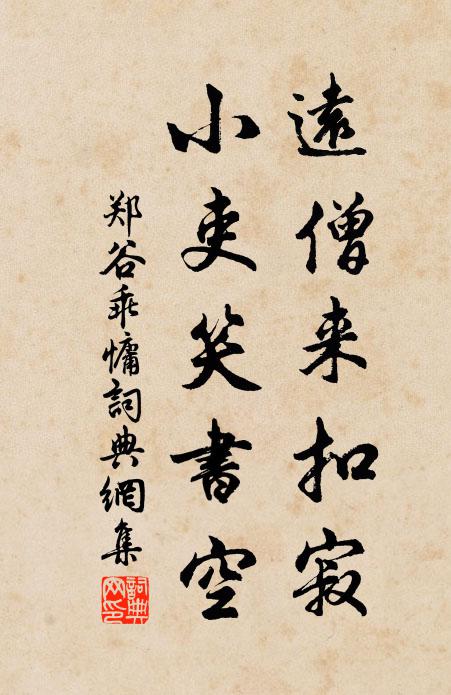 遠僧来扣寂
小吏笑書空
郑谷乖慵詞典網集
詞典網印